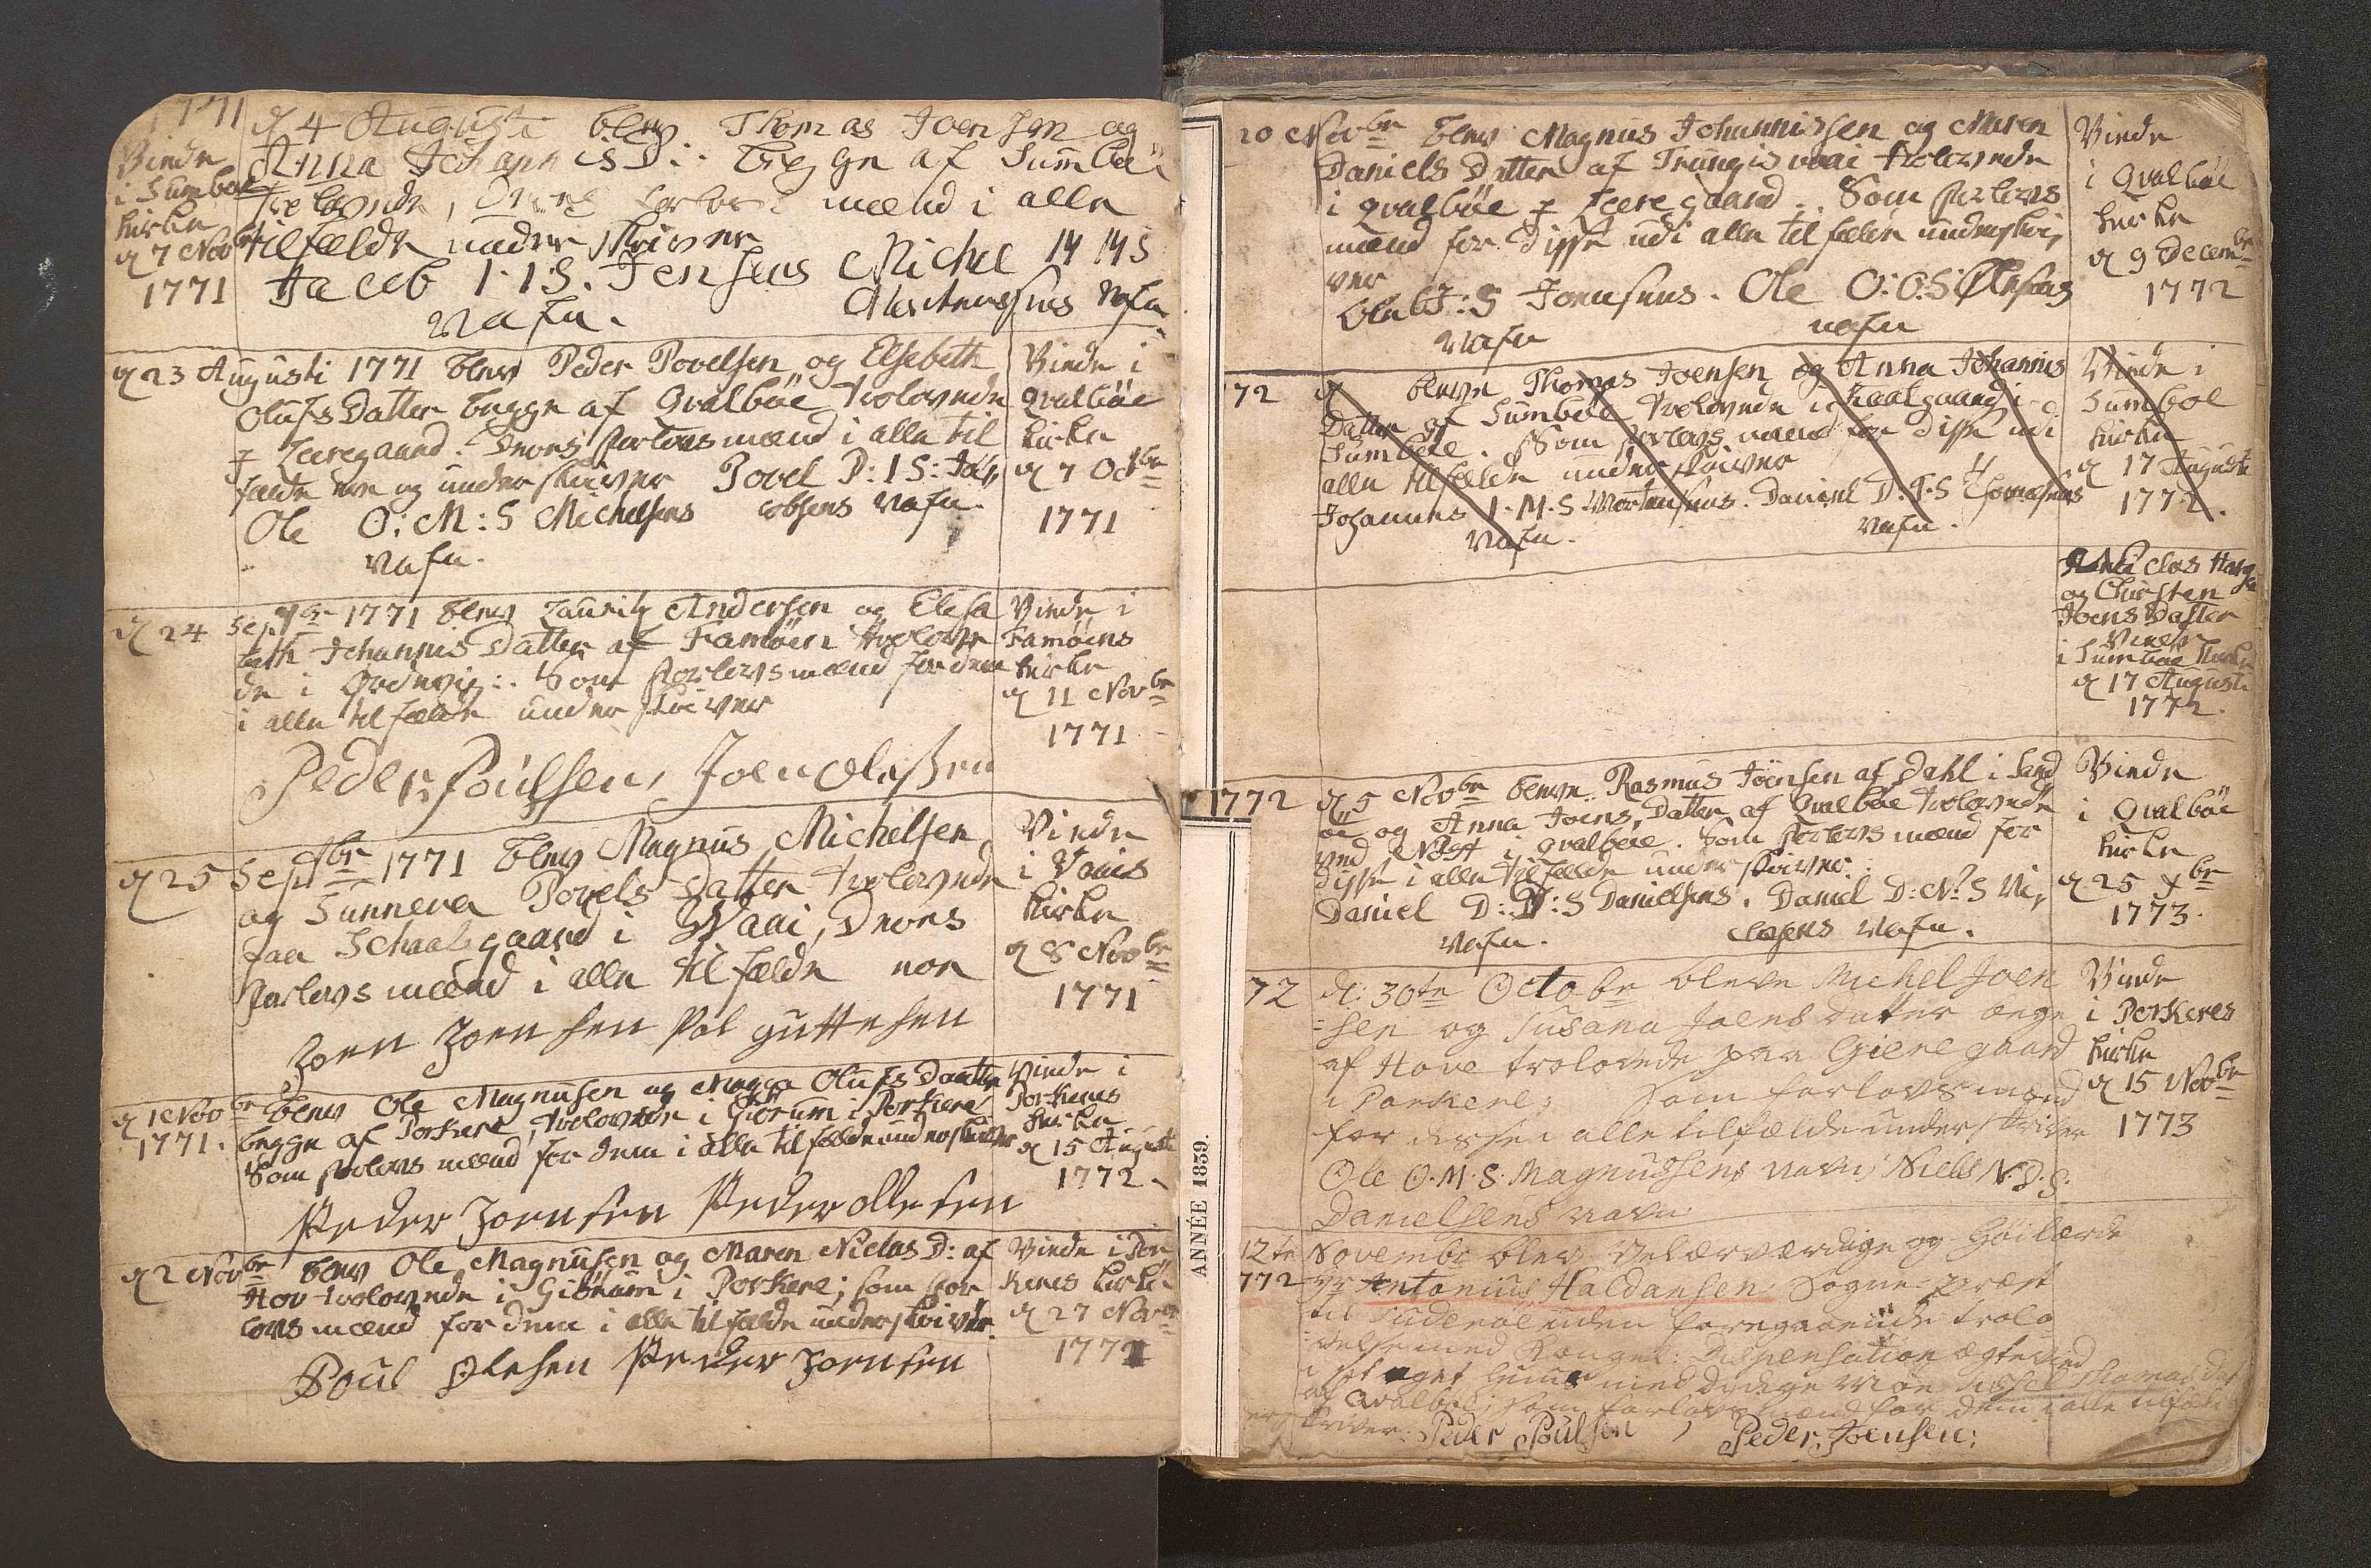 1771
d 4 Augusti blev Thomas Joensen og
Anna Johannis D: begge af Sumbøe
trolovede, Deres forlovsmænd i alle
tilfælde underskriver
Jacob I·I·S. Jensens Michel M M S
Mortensens Nafn
Nafn.
Viede
i Sumbøe
kirke
d 7 Novbr
1771
d 23 Augusti 1771 blev Peder Povelsen og Elsebeth
Olufs Datter begge af Qvalbøe trolovede
p Leeregaard. Deres forlovsmænd i alle til
fælde ere og underskriver Povel P: I S: Ja,,
Ole O: M: S Michelsens cobsens Nafn.
Nafn.
Viede i
Qvalbøe
kirke
d 7 Octbr
1771
d 24 Septbr 1771 blev Lauritz Andersen og Elesa
beth Johannis Datter af Famøien trolove
de i Ørdevig: Som forlovsmænd for dem
i alle tilfælde underskriver
Peder Poulsen, Joen Olessen
Viede i
Famøiens
kirke
d 11 Novbr
1771
d 25 Septbr 1771 blev Magnus Michelsen
og Sunneva Povels Datter trolovede
paa Schaalsgaard i Waai, Deres
forlovsmænd i alle tilfælde ere
Joen Joensen Pol guttesen
Viede
i Vaais
kirke
d 8 Novbr
1771
d 1 Novbr blev Ole Magnusen og Magga Olufs Daatter
1771. begge af Porkere, trolovede i Giørum i Porkere
Som forlovsmænd for dem i alle tilfælde underskriver
Peder Joensen Peder ollesen
Viede i
Porkeres
kirke
d 15 Augusti
1772.
d 2 Novbr blev Ole Magnusen og Maren Niclas D: af
Hov trolovede i Giørum i Porkere; som for
lovsmænd for dem i alle tilfælde underskriver.
Poul Olesen Peder Joensen
Viede i Por
keres kirke
d 27 Novbr
1771
20 Novbr blev Magnus Johannissen og Maren
Daniels Datter af Trungisvaai trolovede
i Qvalbøe p Leeregaard. Som forlovs
mænd for disse udi alle tilfælde underskri,
ver
Ole O:J:S Joensens. Ole O:O:S Olesens
Nafn nafn
Viede
i Qvalbøe
kirke
d 9 Decembr
1772
72 d blevne Thomas Joensen og Anna Johannis
Datter af Sumbøe trolovede i Kaalgaard i
Sumbøe. Som forlovsmænd for disse udi
alle tilfælde underskriver
Johannes I·M·S Mortensens. Daniel D·T·S Thomæsens
Nafn. Nafn.
Viede i
Sumbøe
kirke
d 17 Augusti
1772.
Niclas
og Chirsten
Joens Datter
Viede
i Sumbøe kirke
d 17 Augusti
1772.
1772 d 5 Novbr blevne Rasmus Joensen af Dahl i Sand
øe og Anna Joens Datter af Qvalbøe trolovede
ved i Qvalbøe. Som forlovsmænd for
disse i alle tilfælde underskriver.
Daniel D:D:S Danielsens. Daniel D:N:S Ni,
Nafn. clasens Nafn.
Viede
i Qvalbøe
kirke
d 25 br
1773.
72 d: 30te Octobr bleve Michel Joen
sen og Susana Joens datter bege
af Hove trolovede paa Giøregaard
i Porkere; Som forlovsmænd
for disse i alle tilfælde underskriver
Ole O.M.S. Magnussens navn, Niels N.D.S.
Danielsens navn
Viede
i Porkeres
kirke
d 15 Novbr
1773
12te Novembr blev Velærværdige og Høilærde
772 Hr Antonius Haldansen Sogne præst
til Suderøe uden foregaaende trolo
velse med Kongel: Dispensation ægteviet
i sit eget huus med dydige Møe Sissel Thomasdat
af Qvalbøe; som forlovsmænd for dem i alle tilfælde
skriver: Peder Poulsen, Peder Joensen:
ANNÉE 1839.